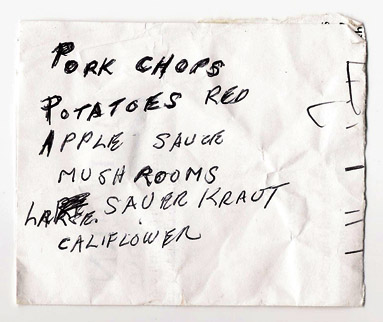 PORK CHOPS
POTATOES RED
APPLE SAUCE
MUSHROOMS
LARGE. SAUER KRAUT
CALIFLOWER